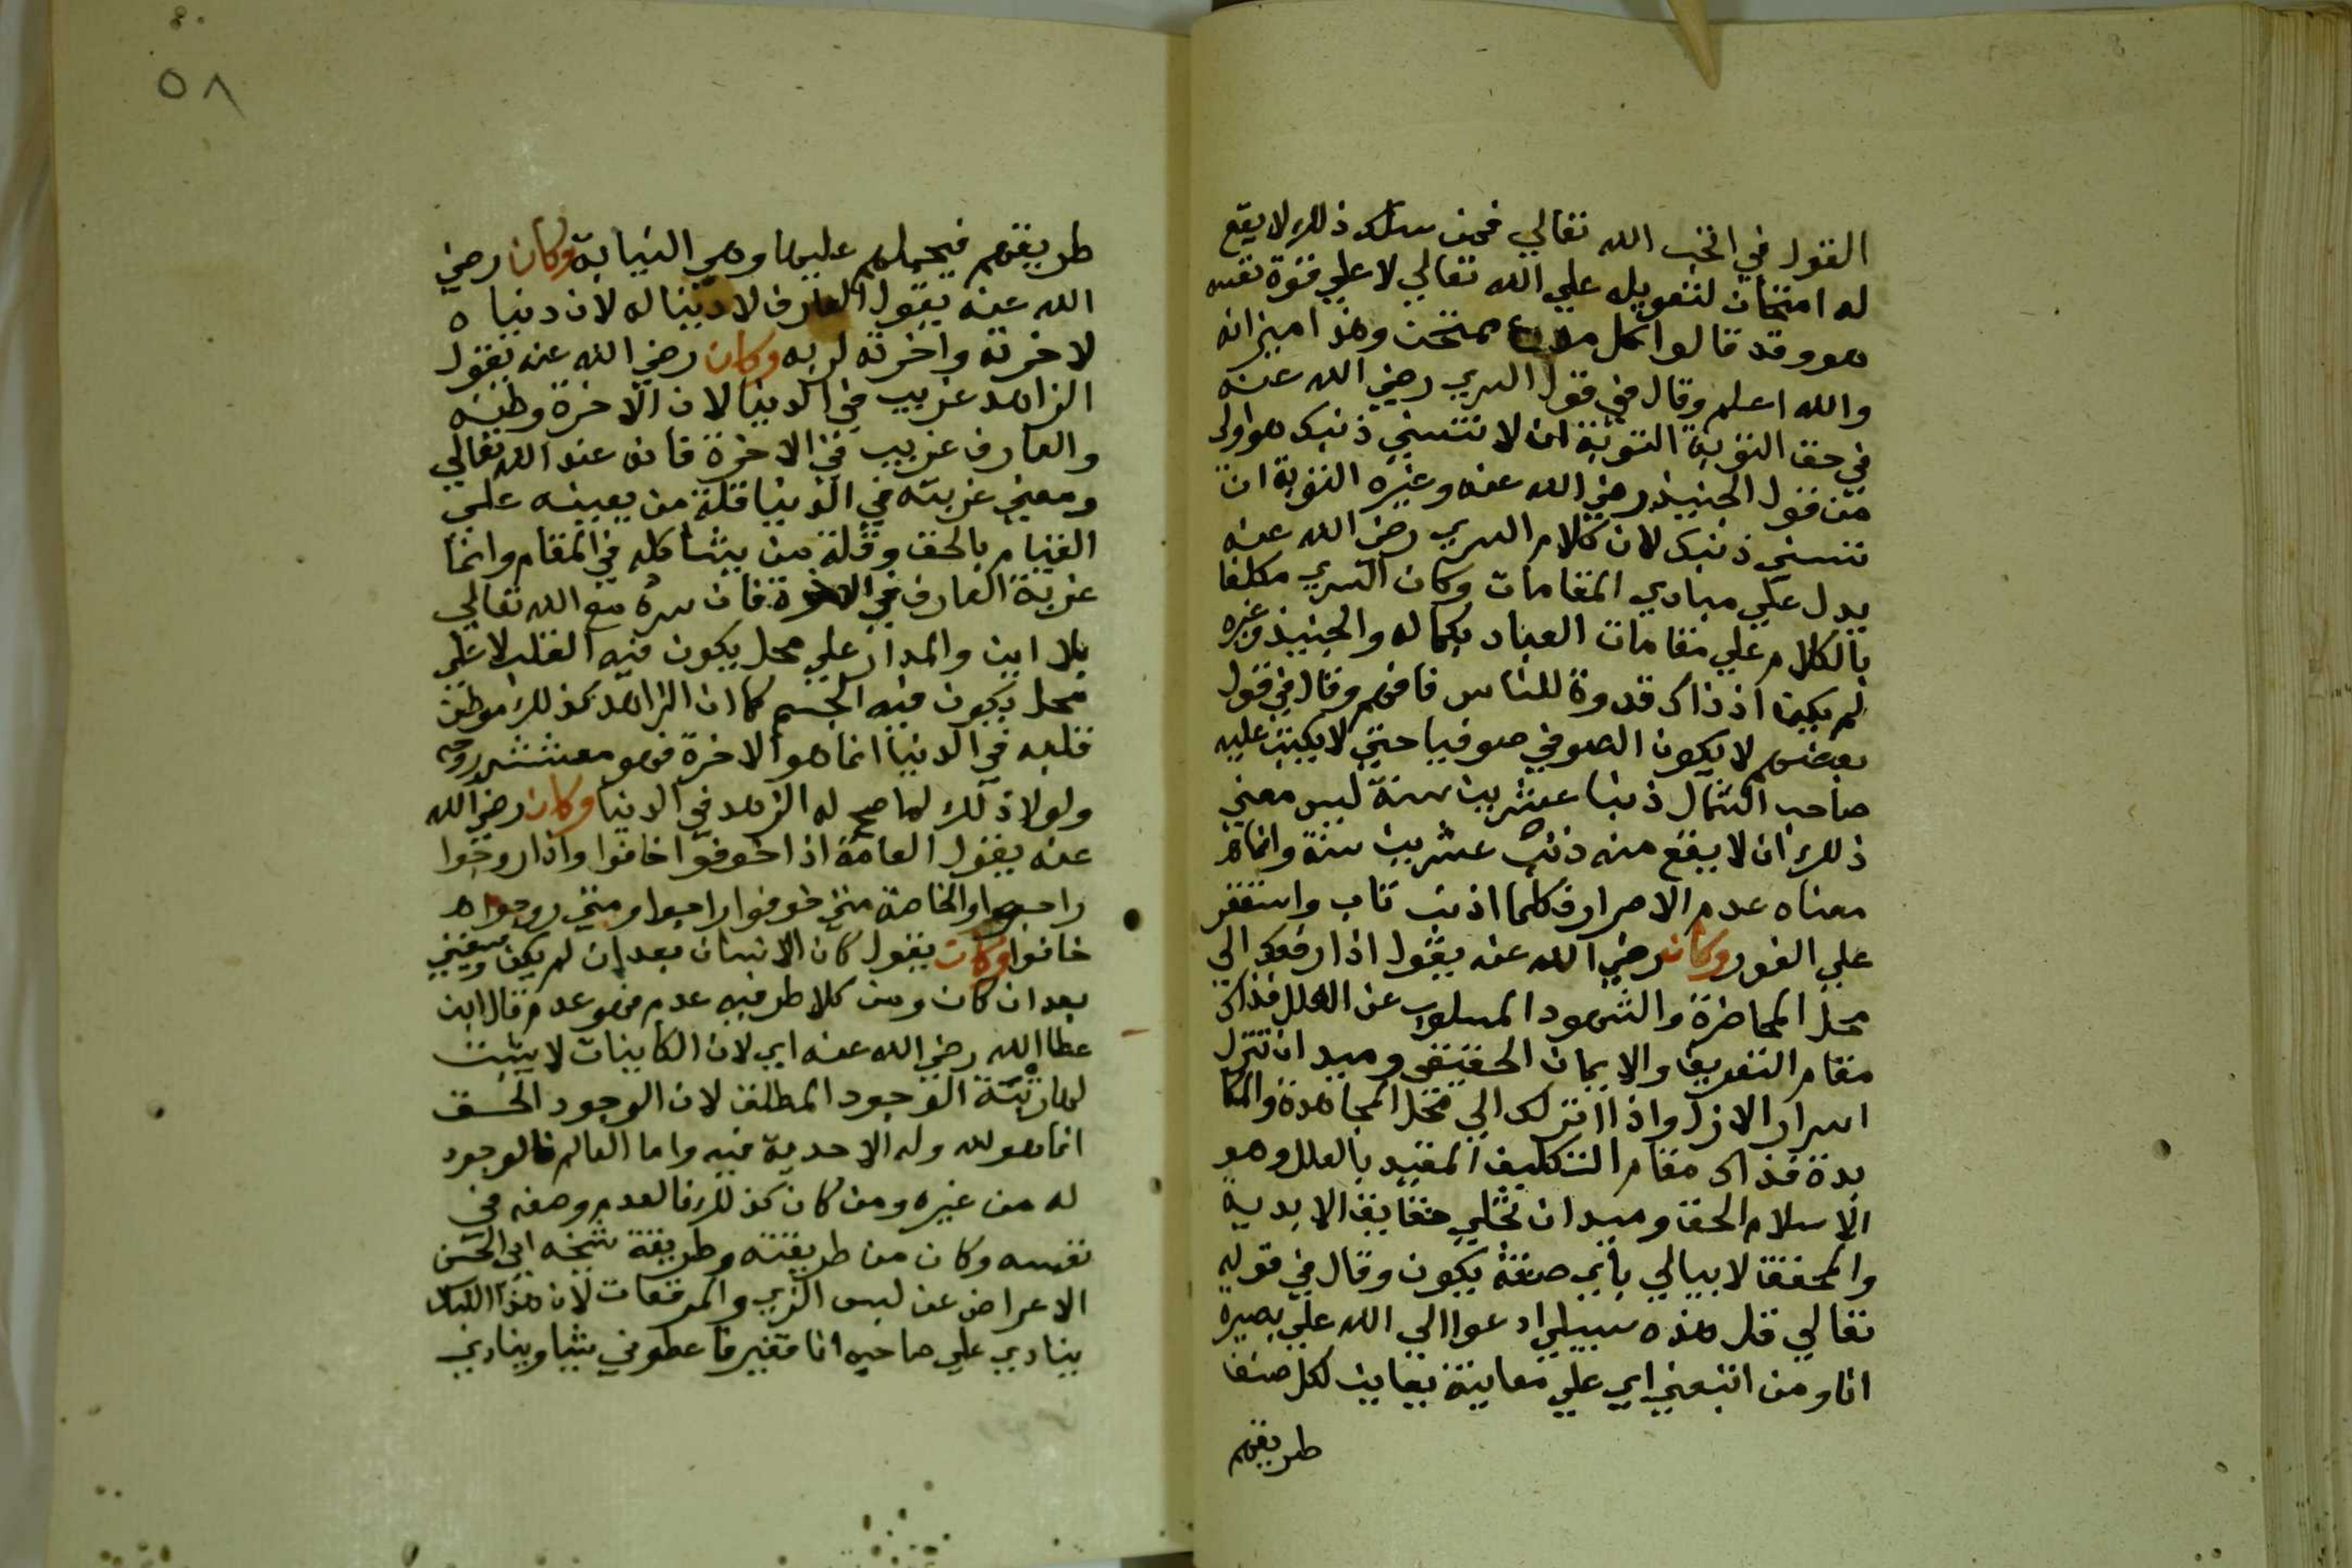 القول في الحب الله تعالي فمن سلك ذلك لا يقع
له امتحان لتعويله علي الله تعالي لا علي قوة نفسه
هو وقد قالوا كل مدع ممتحن وهذا ميزانه
والله اعلم وقال في قول السري رضي الله عنه
في حق التوبة التوبة ان لا تنسي ذنبك هو اولي
من قول الجنيد رضي الله عنه وغيره التوبة ان
تنسي ذنبك لان كلام السري رضي الله عنه
يدل علي مبادي المقامات وكان السري مكلفا
بالكلام علي مقامات العباد بكماله والجنيد وغيره
لم يكن اذ ذاك قدوة للناس فافهم وقال في قول
بعضهم لا يكون الصوفي صوفيا حتي لا يكتب عليه
صاحب الشمال ذنبا عشرين سنة ليس معني
ذلك ان لا يقع منه ذنب عشرين سنة وانما
معناه عدم الاصرار فكلما اذنب تاب واستغفر
علي الفور وكان رضي الله عنه يقول اذا رفعك الي
محل المحاضرة والشهود المسلوب عن العلل فذاك
مقام التعريف والايمان الحقيقي وميدان تنزل
اسرار الازل واذا انزلك الي محل المجاهدة والمكا
بدة فذاك مقام التكليف المقيد بالعلل وهو
الاسلام الحق وميدان تجلي حقايق الابدية
والمحقق لا يبالي باي صفة يكون وقال في قوله
تعالي قل هذه سبيلي ادعوا الي الله علي بصيرة
انا ومن اتبعني اي علي معاينة يعاين لكل صنف
طريقهم
٥٨
طريقهم فيحملهم عليها وهي النيابة وكان رضي
الله عنه يقول العارف لا دنيا له لان دنياه
لاخرته واخرته لربه وكان رضي الله عنه يقول
الزاهد غريب في الدنيا لان الاخرة وطنه
والعارف غريب في الاخرة فانه عند الله تعالي
ومعني غربته في الدنيا قلة من يعينه علي
القيام بالحق وقلة من يشاكله في المقام وانما
غربة العارف في الاخرة فان سره مع الله تعالي
بلا اين والمدار علي محل يكون فيه القلب لا علي
محل يكون فيه الجسم كما ان الزاهد كذلك موطن
قلبه في الدنيا انما هو الاخرة فهو معشش روحه
ولولا ذلك لما صح له الزهد في الدنيا وكان رضي الله
عنه يقول العامة اذا خوفوا خافوا واذا روحوا
راحوا والخاصة متي خوفوا راحوا ومتي روحوا
خافوا وكان يقول كان الانسان بعد ان لم يكن وسيفني
بعد ان كان ومن كلا طرفيه عدم فهو عدم قال ابن
عطا الله رضي الله عنه اي لان الكاينات لا يثبت
لها رتبة الوجود المطلق لان الوجود الحق
انما هو لله وله الاحدية فيه واما العالم فالوجود
له من غيره ومن كان كذلك فالعدم وصفه في
نفسه وكان من طريقته وطريقة شيخه ابي الحسن
الاعراض عن لبس الزي والمرقعات لان هذا اللباس
ينادي علي صاحبه انا فقير فاعطوني شيا وينادي